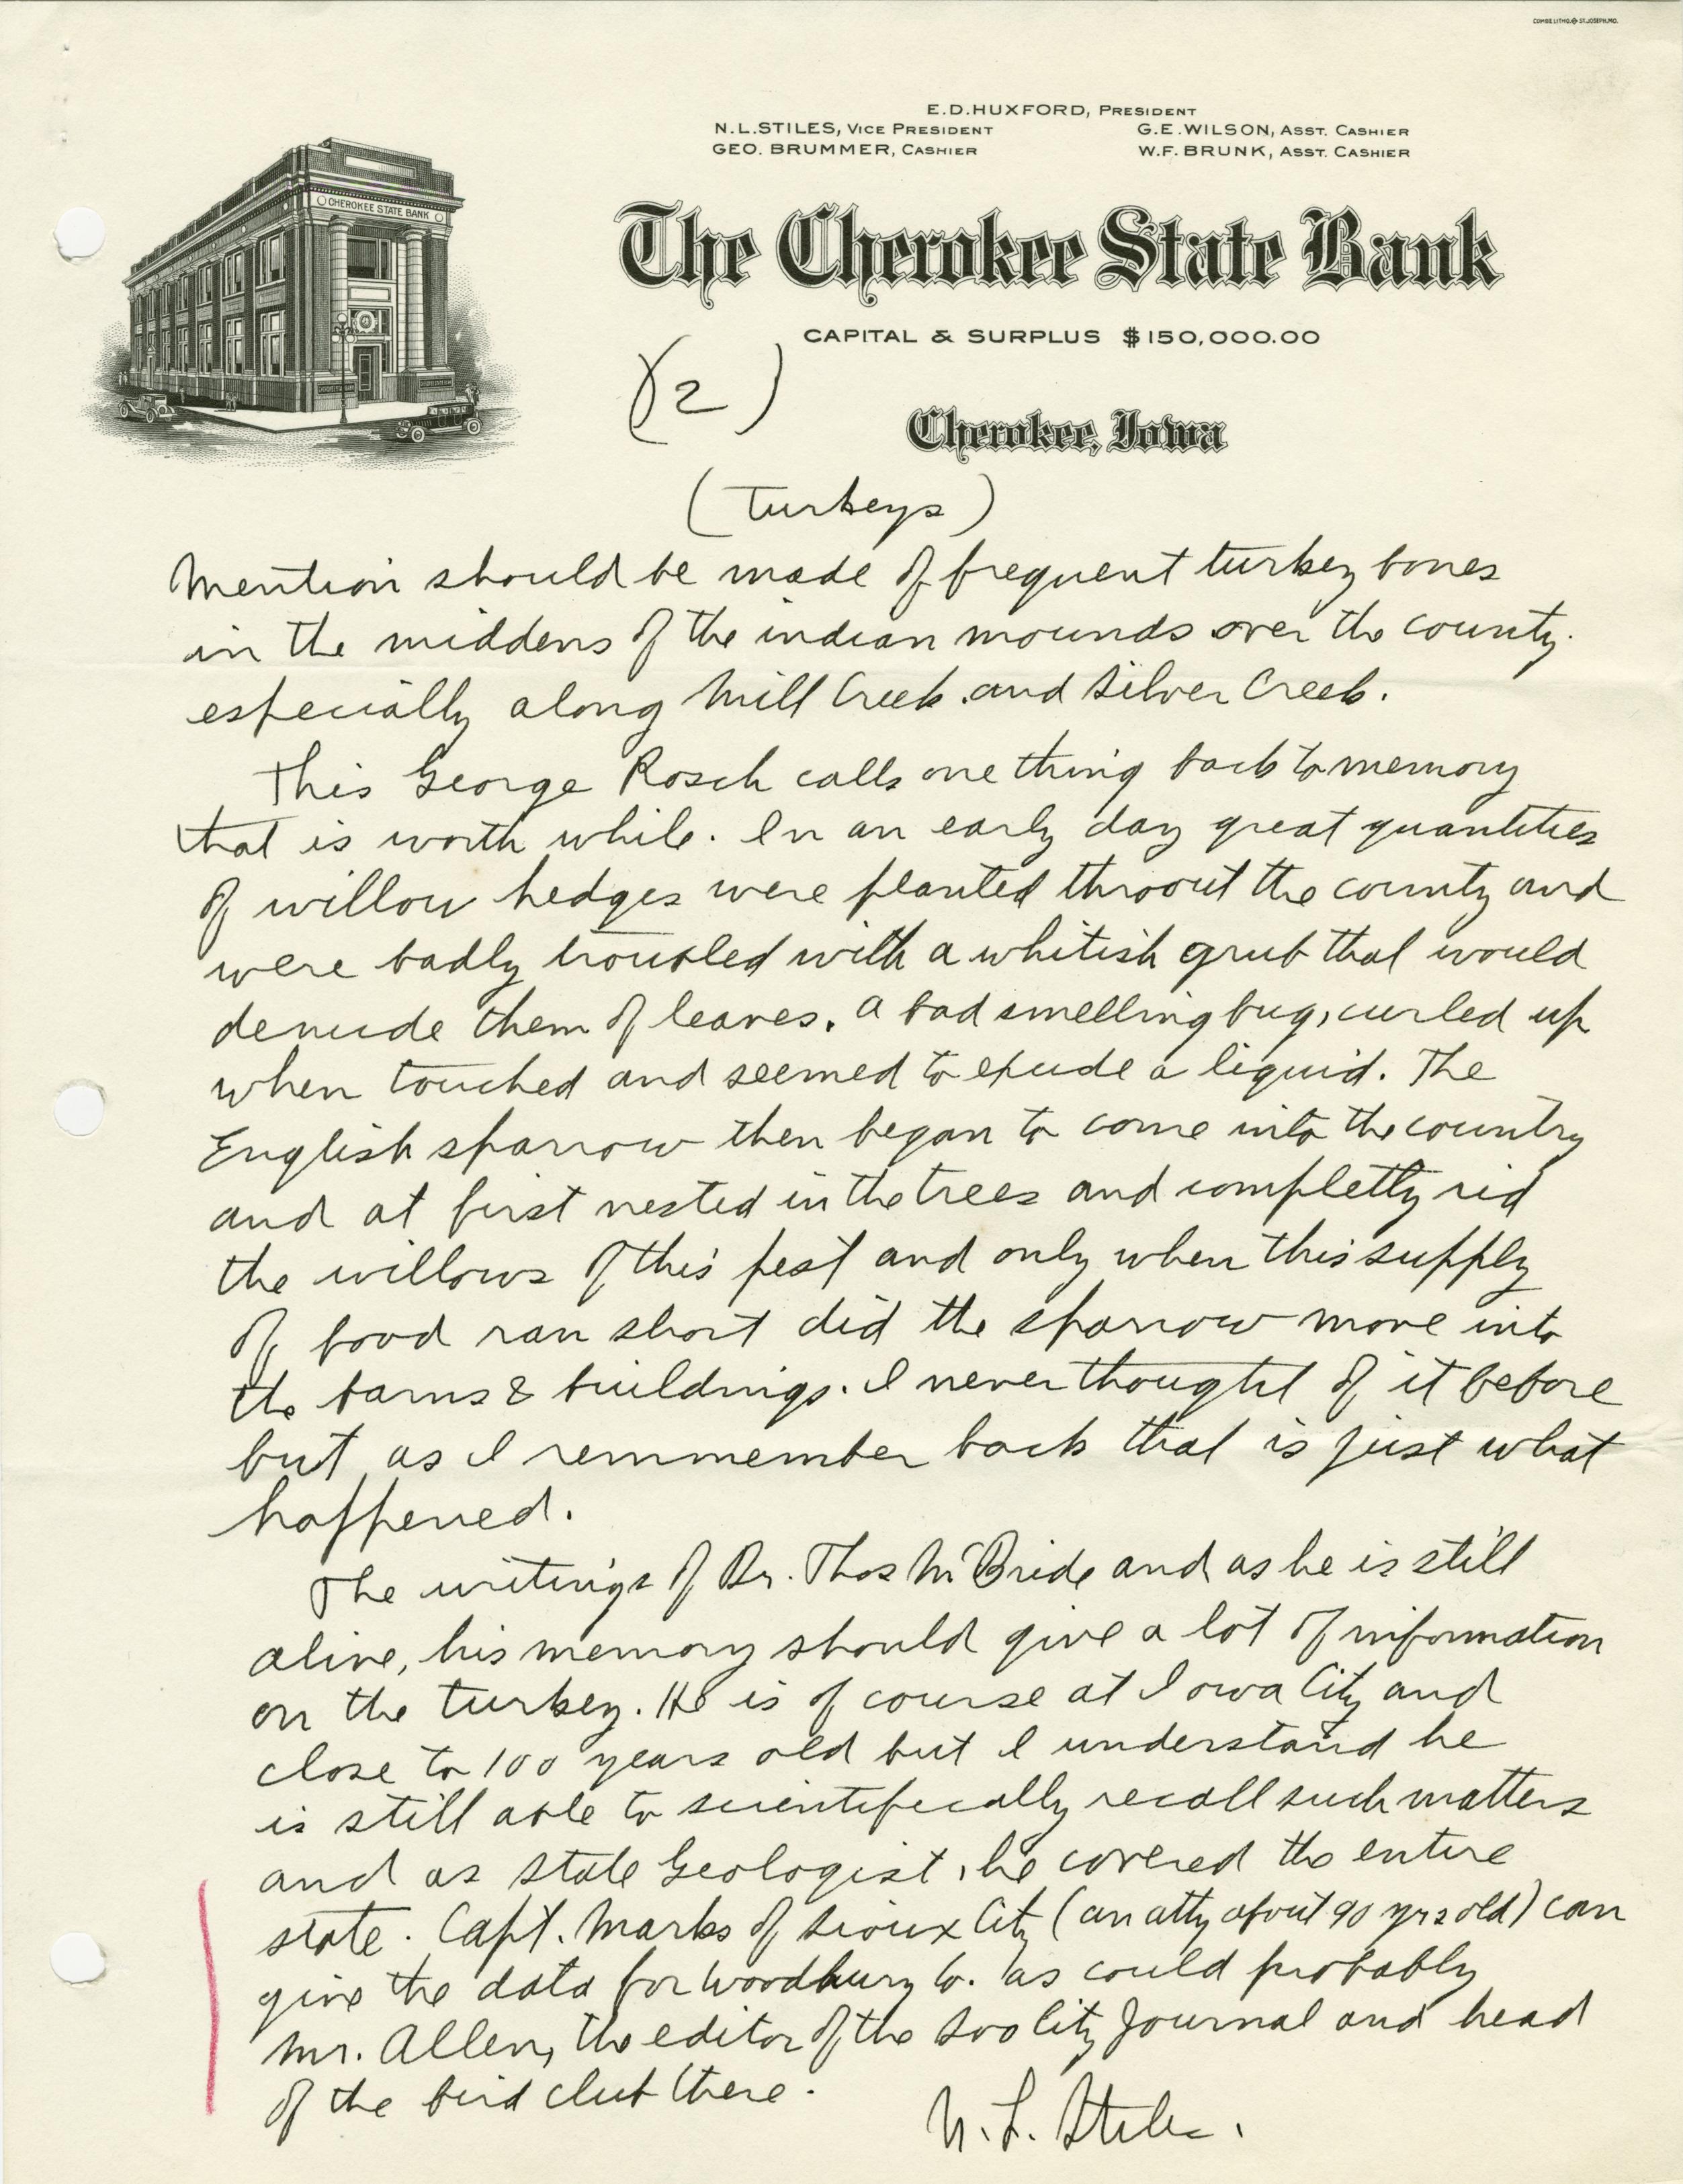 COMBE LITHO. ST. JOSEPH, MO.
E.D.HUXFORD, PRESIDENT
N.L.STILES, VICE PRESIDENT G.E.WILSON, ASST. CASHIER
GEO. BRUMMER, CASHIER W.F. BRUNK, ASST. CASHIER
CHEROKEE STATE BANK
The Cherokee State Bank
CAPITAL & SURPLUS $150,000.00
(2)
Cherokee, Iowa
(Turkeys)
Mention should be made of frequent turkey bones
in the middens of the indian mounds over the county.
especially along Mill Creek and Silver Creek.
This George Rosch calls one thing back to memory
that is worth while. In an early day great quantities
of willow hedges were planted throout the county and
were badly troubled with a whitish grub that would
denude them of leaves. A bad smelling bug, curled up
when touched and seemed to exude a liquid. The
English sparrow then began to come into the country
and at first nested in the trees and completly rid
the willows of this pest and only when this supply
of food ran short did the sparrow move into
the barns & buildings. I never thought of it before
but as I remmember back that is just what
happened.
The writings of Dr. Thos McBride and as he is still
alive, his memory should give a lot of information
on the turkey. He is of course at Iowa City and
close to 100 years old but I understand he
is still able to scientifically recall such matters
and as state Geologist, he covered the entire
state. Capt. Marks of Sioux City (an atty about 90 yrs old) can
give the data for Woodbury Co. as could probably
Mr. Allen, the editor of the Soo City Journal and head
of the bird club there.
N. L. Stiles.